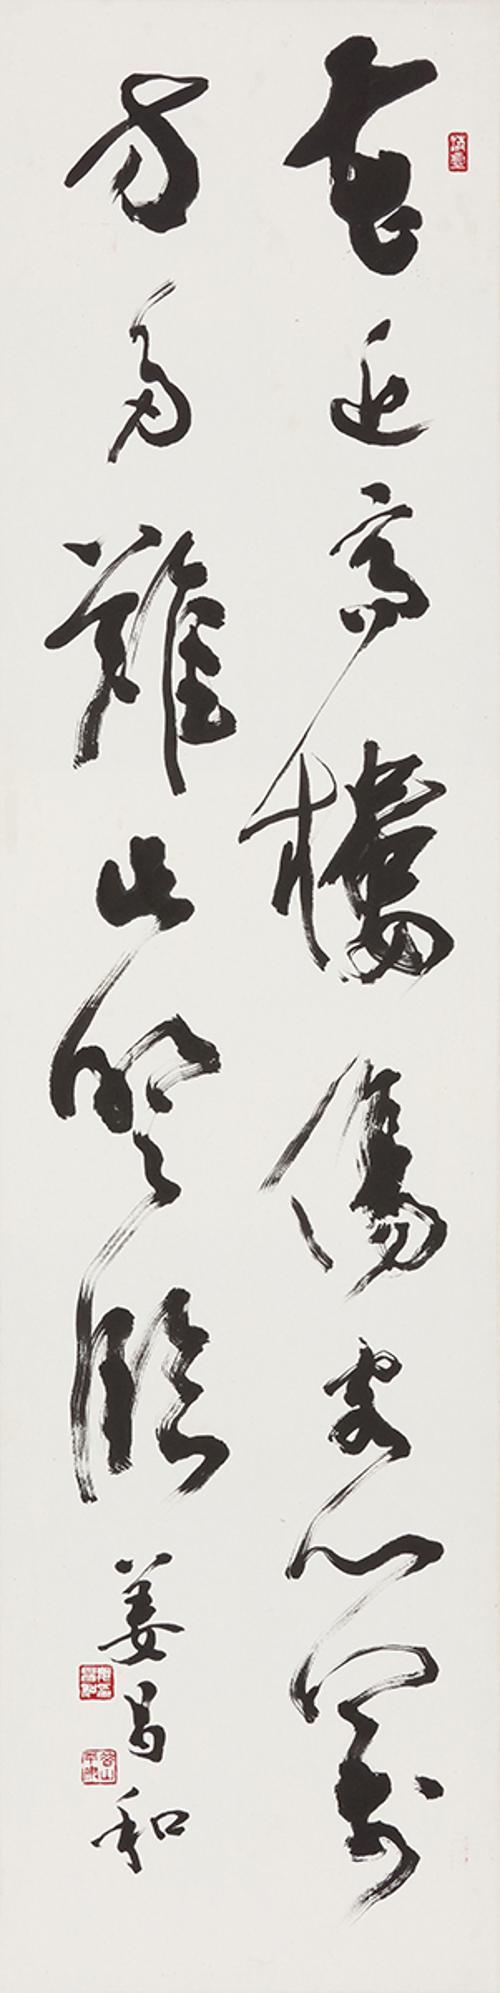 花近高樓傷客心萬
方多難此登臨 姜昌和